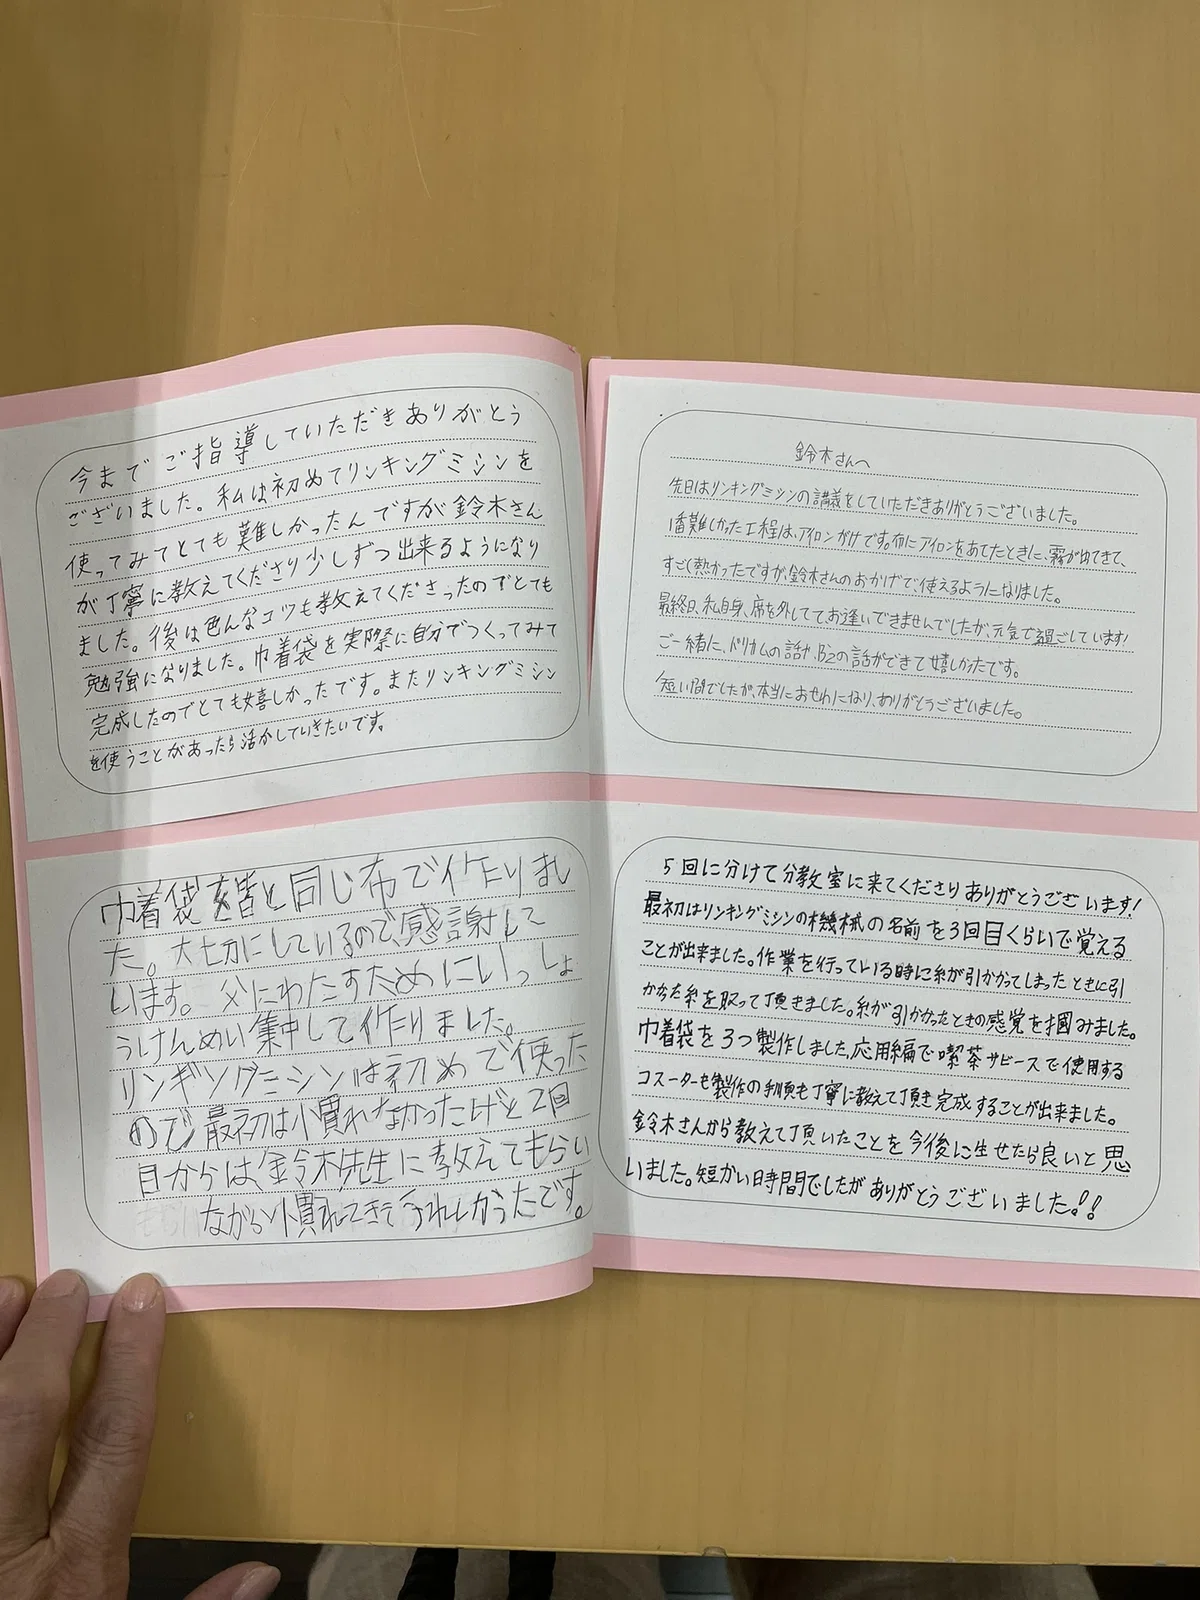 今までご指導していただきありがとう
ございました。私は初めてリンキングミシンを
使ってみてとても難しかったんですが鈴木さん
が丁寧に教えてくださり少しずつ出来るようになり
ました。後は色んなコツも教えてくださったのでとても
勉強になりました。巾着袋を実際に自分でつくってみて
完成したのでとても嬉しかったです。またリンキングミシン
を使うことがあったら活かしていきたいです。
巾着袋を皆と同じ布で作りまし
た。大切にしているので、感謝して
います。父にわたすためにいっしょ
うけんめい集中して作りました。
リンギングミシンは初めて使った
ので最初は慣れなかったけど2回
目からは、鈴木先生に教えてもらい
ながら慣れてきてうれしかったです。
鈴木さんへ
先日はリンキングミシンの講義をしていただきありがとうございました。
1番難しかった工程は、アイロンがけです。布にアイロンをあてたときに、霧が出てきて、
すごく熱かったですが、鈴木さんのおかげで使えるようになりました。
最終日、私自身、席を外しててお逢いできませんでしたが、元気で過ごしています!
ご一緒に、ドリカムの話や、B'zの話ができて嬉しかったです。
短い間でしたが、本当におせわになり、ありがとうございました。
5回に分けて分教室に来てくださりありがとうございます!
最初はリンキングミシンの機械の名前を3回目くらいで覚える
ことが出来ました。作業を行っている時に糸が引かかってしまったときに引
かかった糸を取って頂きました。糸が引かかったときの感覚を掴みました。
巾着袋を3つ製作しました。応用編で喫茶サービースで使用する
コースターも製作の手順も丁寧に教えて頂き完成することが出来ました。
鈴木さんから教えて頂いたことを今後に生せたら良いと思
いました。短かい日時間でしたがありがとうございました!!